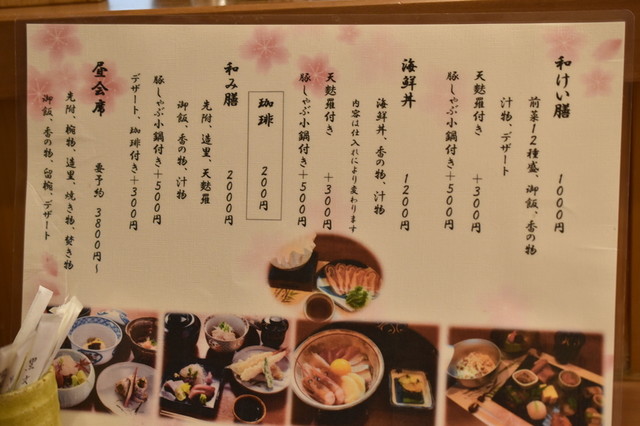 和けい膳 1000円
前菜12種盛、御飯、香の物
汁物、デザート
天麩羅付き +300円
豚しゃぶ小鍋付き+500円
海鮮丼 1200円
海鮮丼、香の物、汁物
内容は仕入れにより変わります
天麩羅付き +300円
豚しゃぶ小鍋付き+500円
珈琲 200円
和み膳 2000円
先附、造里、天麩羅
御飯、香の物、汁物
豚しゃぶ小鍋付き+500円
デザート、珈琲付き+300円
昼会席 要予約 3800円~
先附、椀物、造里、焼き物、焚き物
御飯、香の物、留椀、デザート